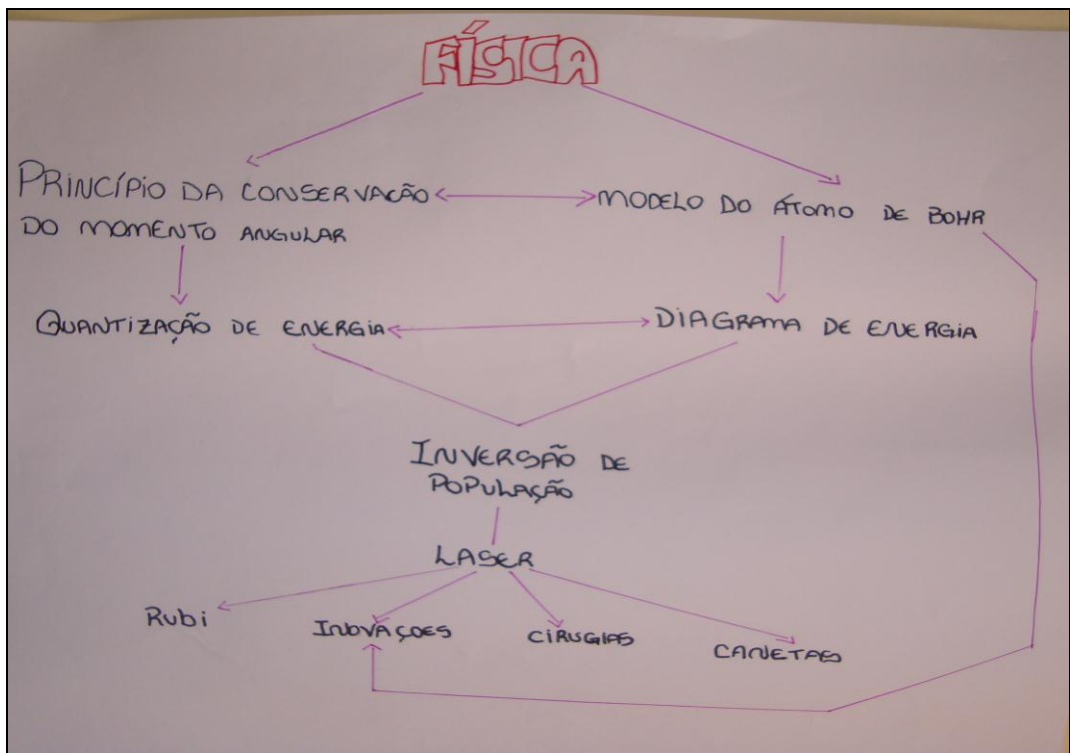 FÍSICA
PRINCÍPIO DA CONSERVAÇÃO
DO MOMENTO ANGULAR
MODELO DO ÁTOMO DE BOHR
QUANTIZAÇÃO DE ENERGIA
DIAGRAMA DE ENERGIA
INVERSÃO DE
POPULAÇÃO
LASER
Rubi
INOVAÇOES
CIRUGIAS
CANETAS